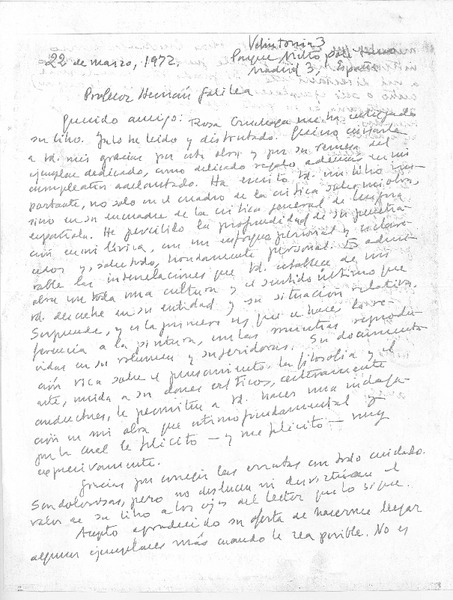 22 de marzo, 1972.
Velintonia 3
Parque Metropolitano
Madrid 3, España
Profesor Hernán Galilea
Querido amigo: Rosa me ha entregado
su libro. Ya lo he leído y disfrutado. Quiero enviarle
a Vd. mis gracias por esta obra y por su remesa del
ejemplar dedicado, como delicado regalo además en mi
cumpleaños adelantado. Ha escrito Vd. un libro im-
portante, no solo en el cuadro de la crítica sobre mi obra,
sino en su encuadre de la crítica general de la poesía
española. He percibido la profundidad de su penetra-
ción en mi lírica, con un enfoque personal y esclare-
cedor y, sobre todo, hondamente personal. Es admi-
rable las interrelaciones que Vd. establece de mi
obra en toda una cultura y el sentido último que
Vd. descubre en su entidad y su situación relativa.
Sorprende, y es la primera vez que se hace, la re-
ferencia a la pintura, en las muestras reprodu-
cidas en su volumen y sugeridoras. Su documenta-
ción rica sobre el pensamiento, la filosofía y el
arte, unida a sus dones críticos, certeramente
conductores, le permiten a Vd. hacer una indaga-
ción en mi obra que estimo fundamental y
por la cual le felicito — y me felicito — muy
expresivamente.
Gracias por corregir las erratas con todo cuidado.
Son dolorosas, pero no deslucen ni desvirtúan el
valor de su libro a los ojos del lector que lo sigue.
Acepto agradecido su oferta de hacerme llegar
algunos ejemplares más cuando le sea posible. No es